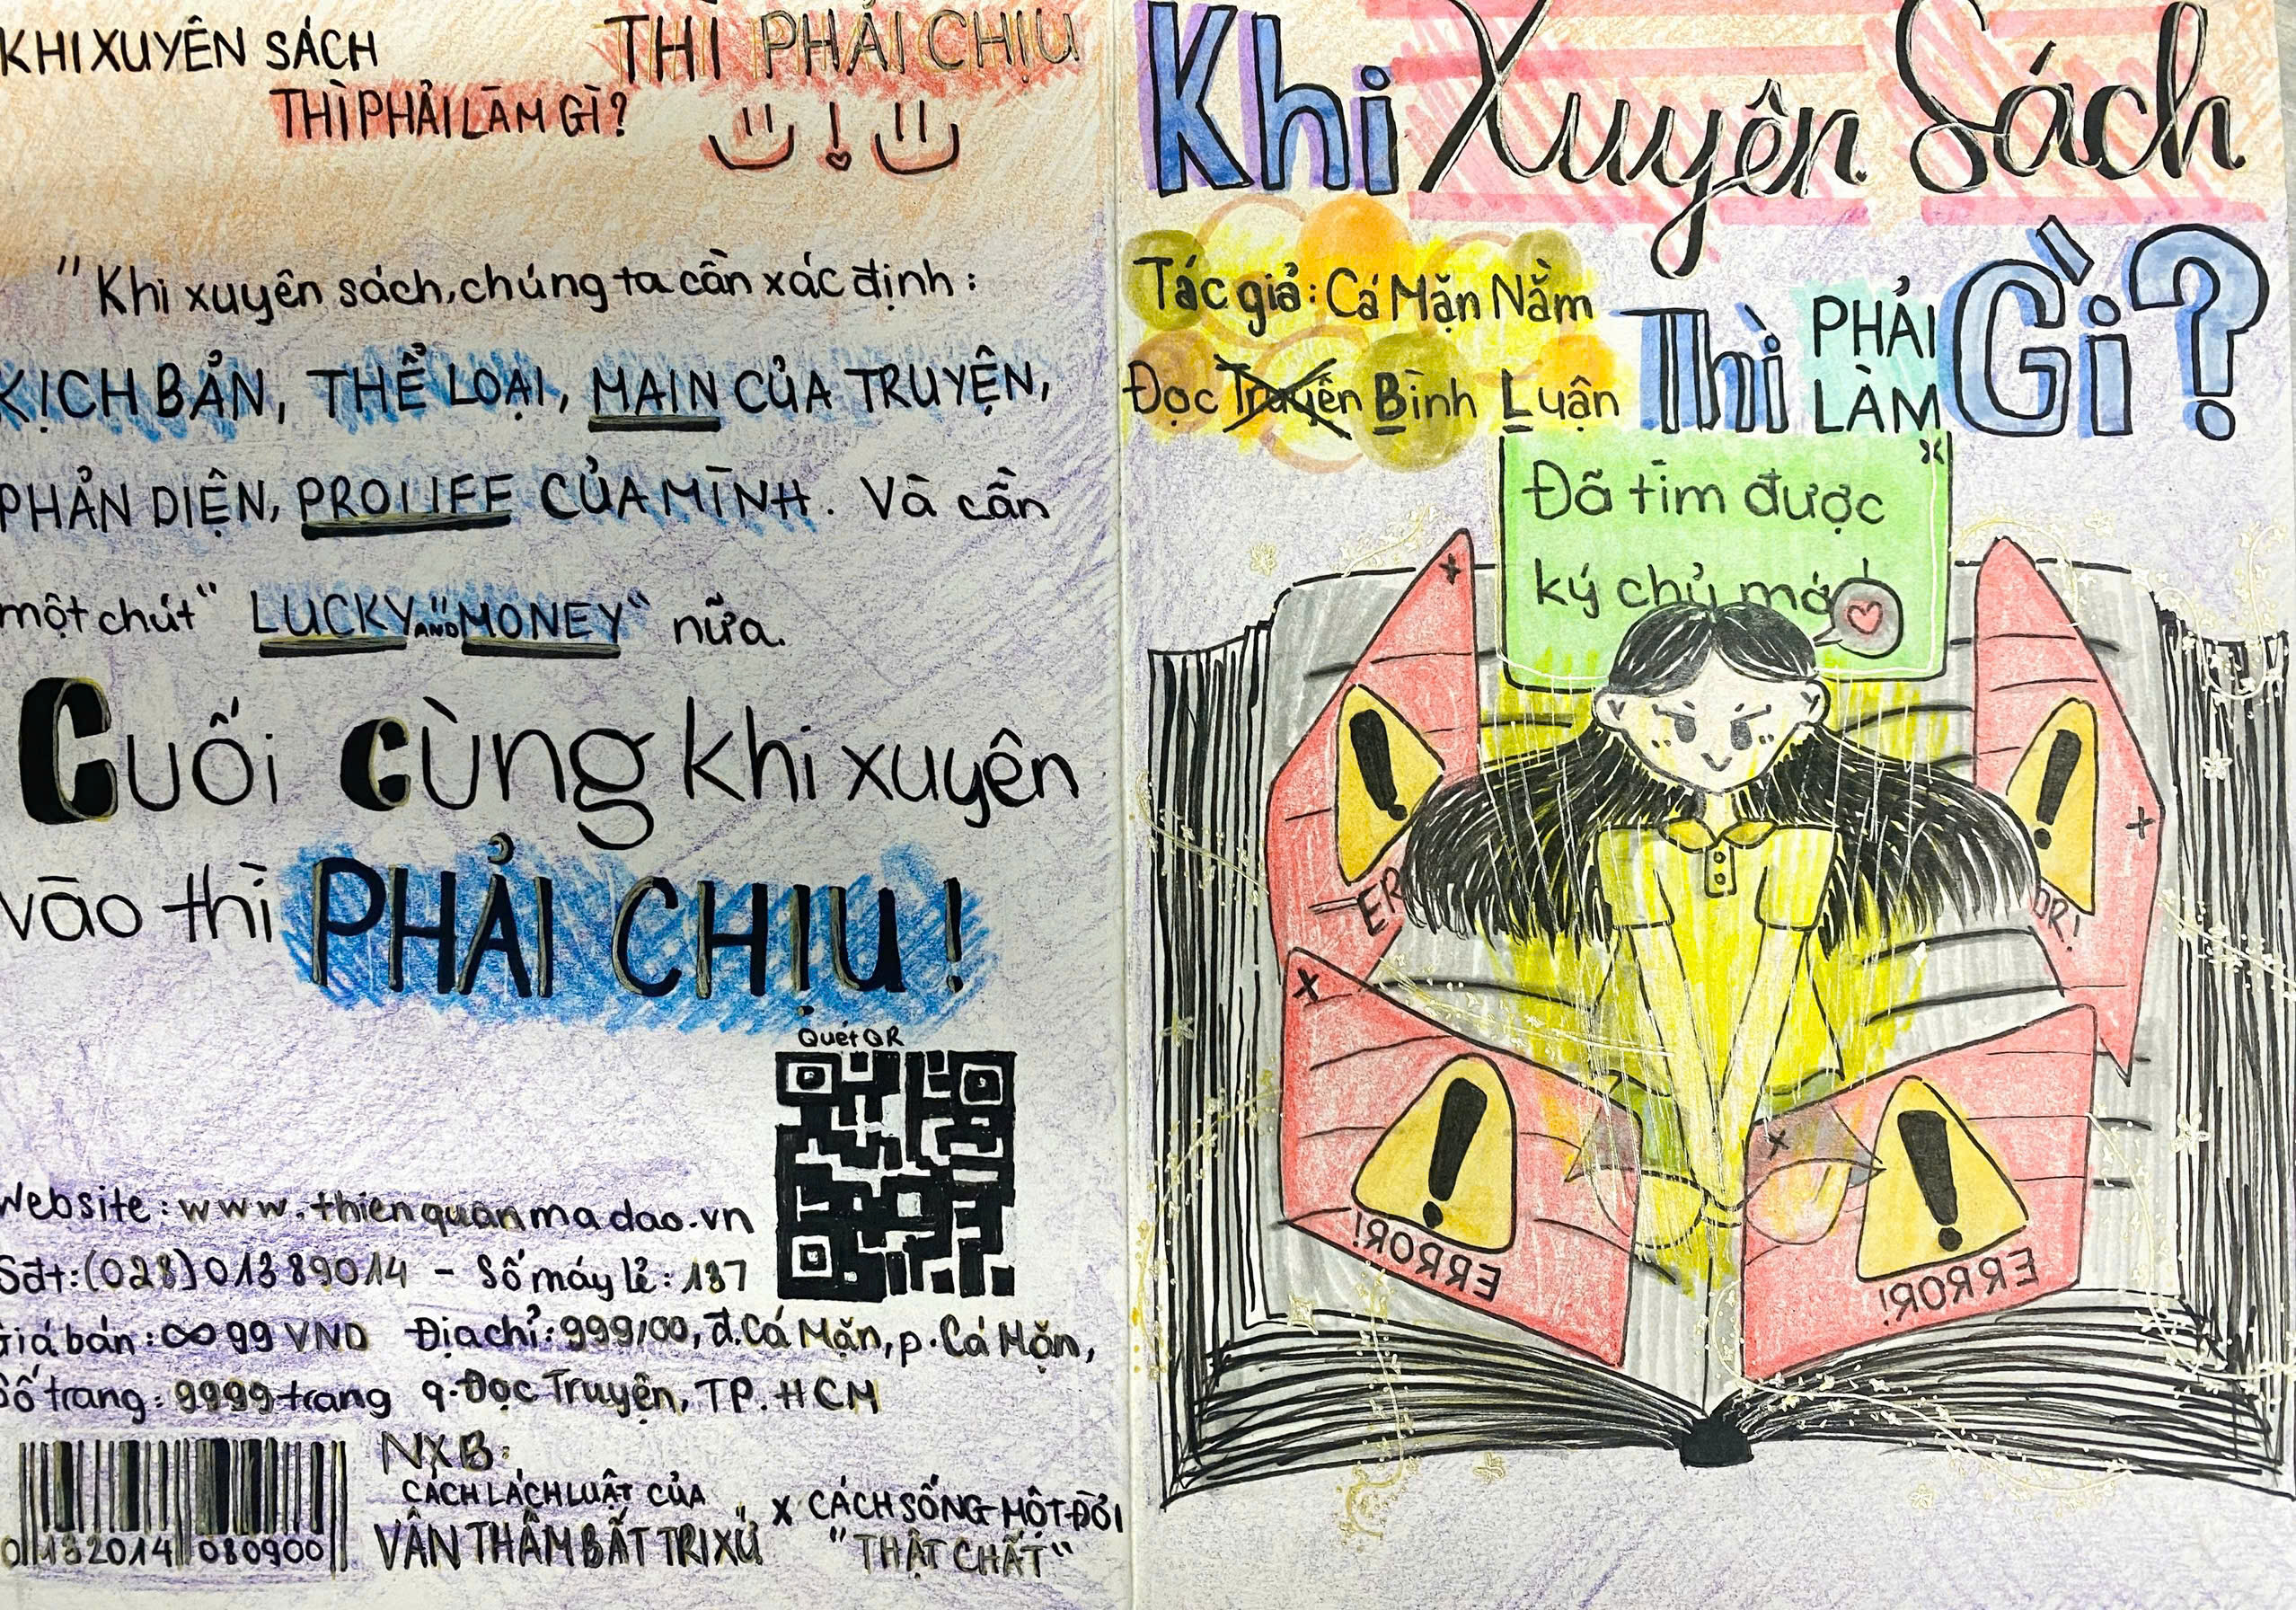 KHI XUYÊN SÁCH
THÌ PHẢI LÀM GÌ?
THÌ PHẢI CHỊU
!
"Khi xuyên sách, chúng ta cần xác định:
KỊCH BẢN, THỂ LOẠI, MAIN CỦA TRUYỆN,
PHẢN DIỆN, PROLIFE CỦA MÌNH. Và cần
một chút" LUCKY "AND" MONEY" nữa.
Cuối cùng khi xuyên
vào thì PHẢI CHỊU!
Quét QR
Website: www.thienquanmadao.vn
Sđt: (028) 01389014 - Số máy lẻ: 137
Giá bán: ∞99 VND
Địa chỉ: 999/00, đ. Cá Mặn, p. Cá Mặn,
Số trang: 9999 trang
q. Đọc Truyện, TP. HCM
0 132014 080900
NXB:
CÁCH LÁCH LUẬT CỦA
VÂN THÂM BẤT TRI XỨ" x CÁCH SỐNG MỘT ĐỜI
"THẬT CHẤT"
Khi Xuyên Sách
Thì PHẢI LÀM Gì?
Tác giả: Cá Mặn Nằm
Đọc Truyện Bình Luận
x
Đã tìm được
ký chủ mới
x
x
ER
OR!
x
x
ERROR!
ERROR!